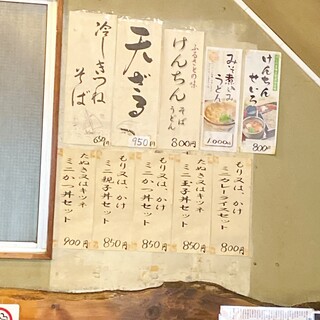 けんちん
せいろ
800円
みそ煮込み
うどん
1,000円
ふるさとの味
けんちん
そば
うどん
800円
天ざる
950円
冷しきつね
そば
650円
もり又は、かけ
ミニカレーライスセット
800円
たぬき又はキツネ
ミニ玉子丼セット
850円
もり又は、かけ
ミニかつ丼セット
850円
もり又は、かけ
ミニ親子丼セット
850円
たぬき又はキツネ
ミニかつ丼セット
900円